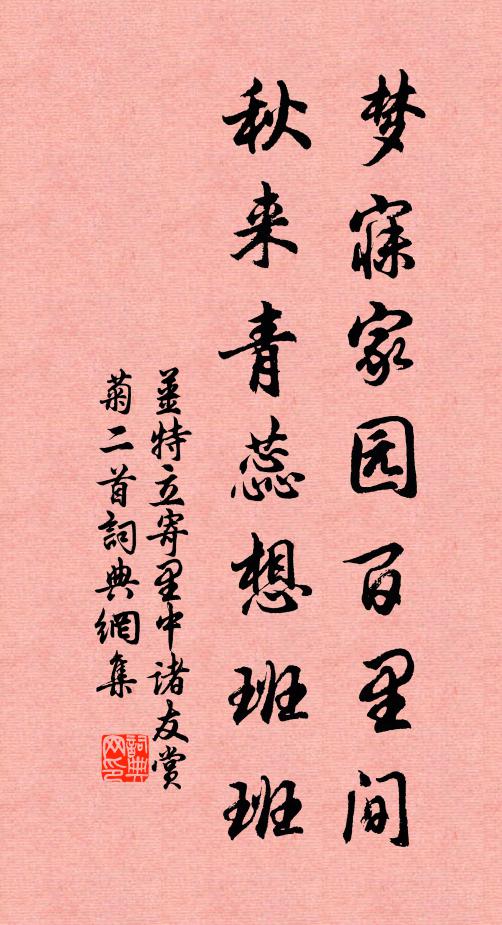 梦寐家园百里间
秋来青蕊想班班
姜特立寄里中诸友赏
菊二首詞典網集
詞典
网印